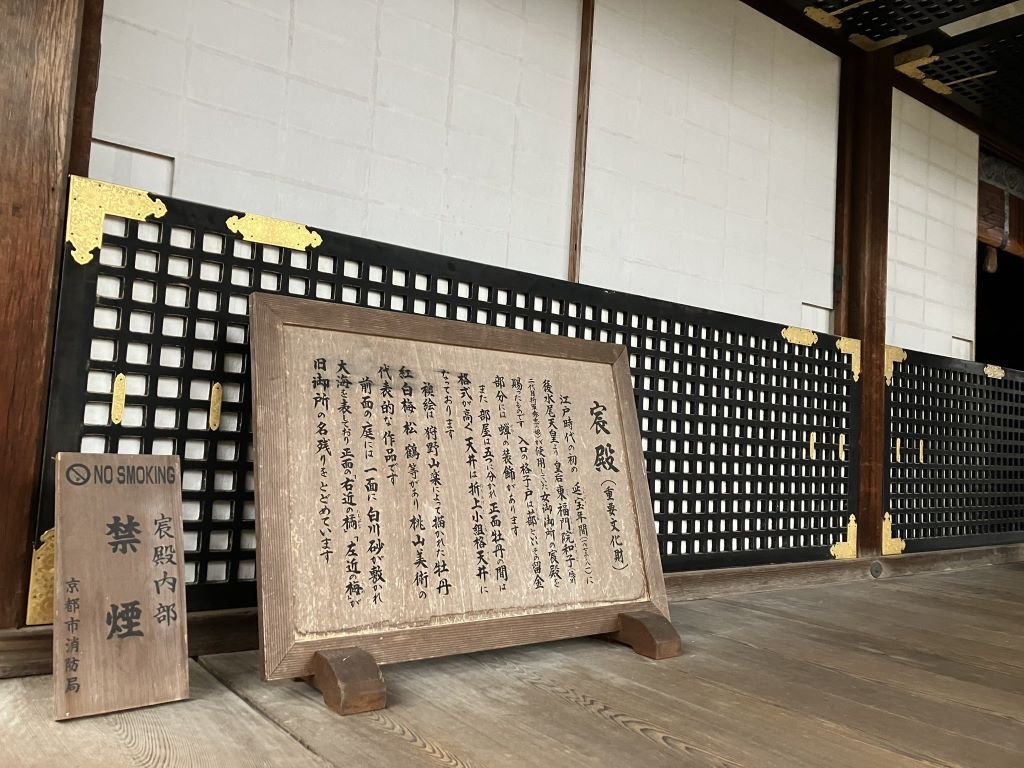 宸殿(重要文化財)
江戸時代の初の延宝年間に
後水尾天皇より皇后東福門院和子
が使用していた女御御所の宸殿を
賜ったものです 入口の格子戸は蔀といいその留金
部分には蝉の装飾があります
また 部屋は五つに分かれ正面牡丹の間は
格式が高く 天井は折上小組格天井に
なっております
襖絵は 狩野山楽によって描かれた牡丹
紅白梅 松 鶴 等があり 桃山美術の
代表的な作品です
前面の庭には 一面に白川砂が敷かれ
大海を表しており 正面の"右近の橘"、"左近の梅"が
旧御所の名残りをとどめています
NO SMOKING
宸殿内部
禁煙
京都市消防局